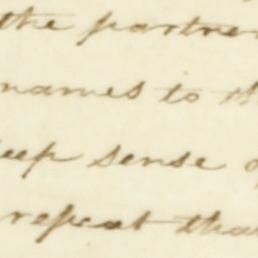 the partner
names to th
eep sense o
repeat that